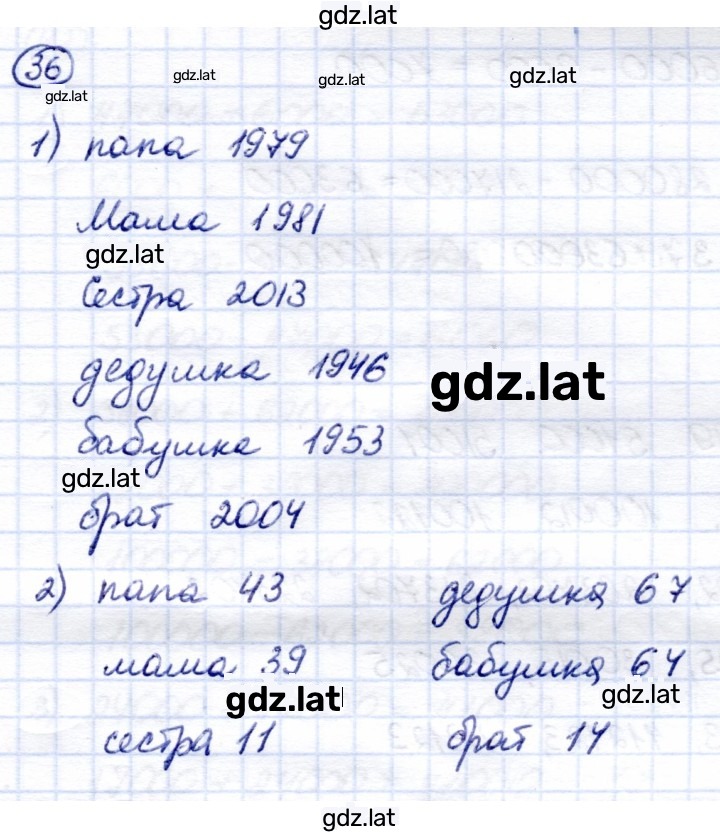 gdz.lat
36
gdz.lat gdz.lat gdz.lat
gdz.lat
1) папа 1979
Мама 1981
gdz.lat
Сестра 2013
дедушка 1946
gdz.lat
бабушка 1953
gdz.lat
брат 2004
2) папа 43 дедушка 67
мама 39 бабушка 64
gdz.lat gdz.lat
сестра 11 брат 14
gdz.lat